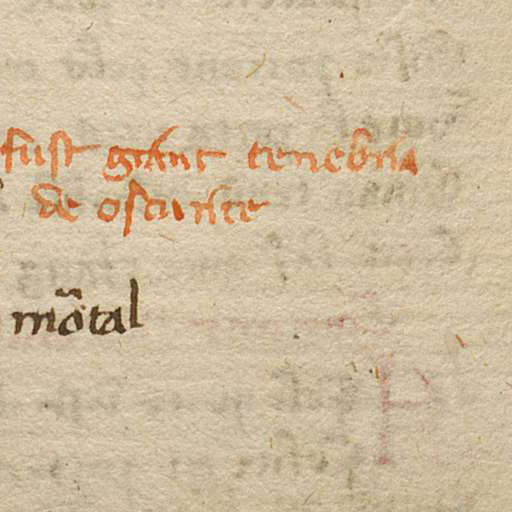 fust grant tenebria
de oscurite
mõtal